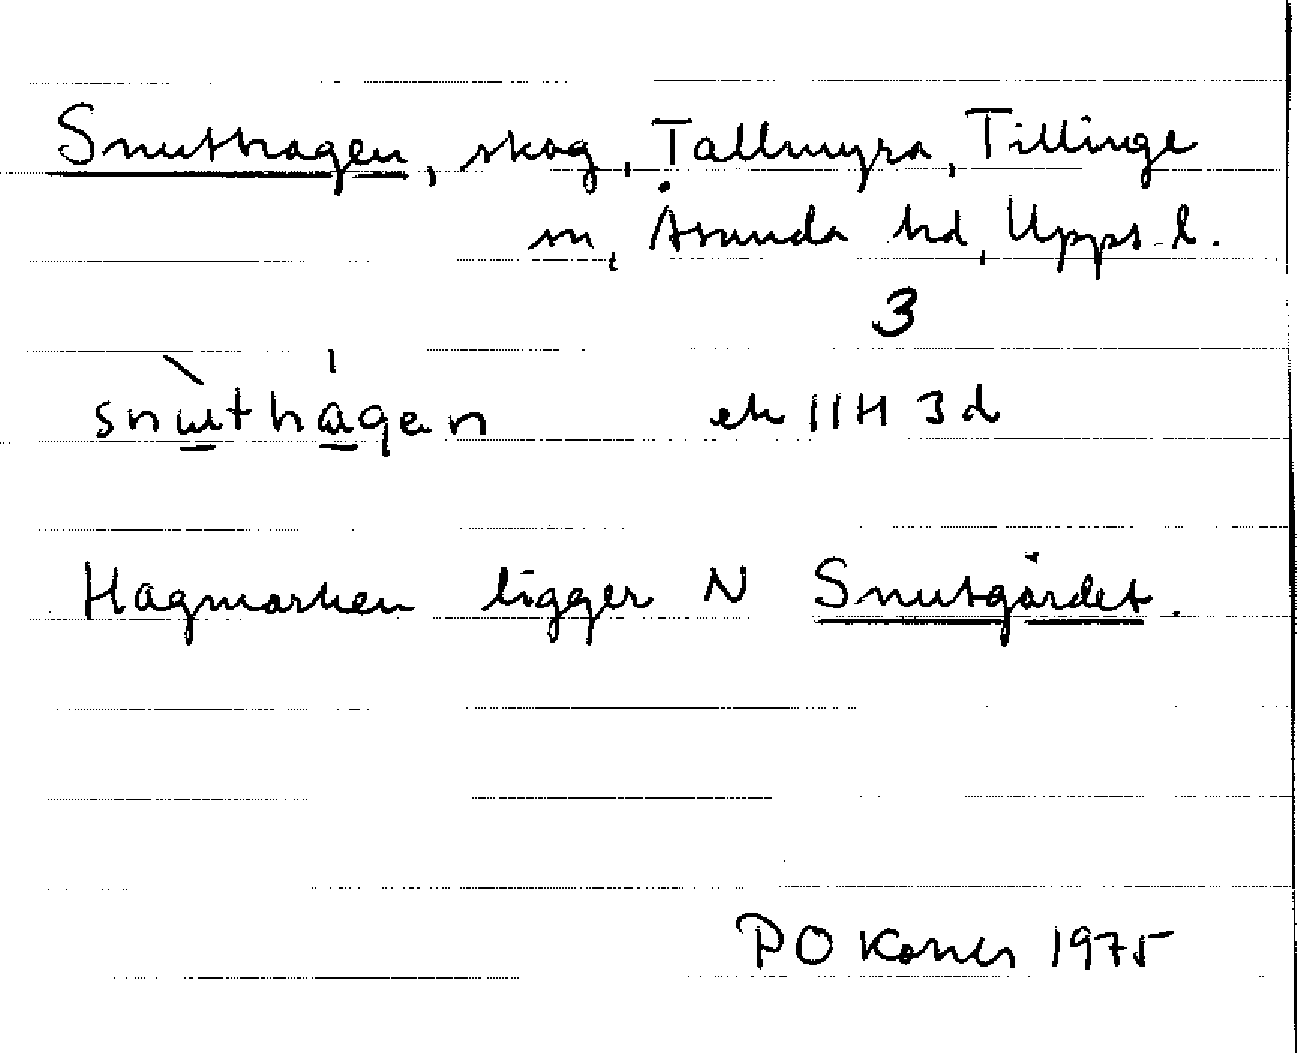 Snuthagen, skog, Tallmyra, Tillinge
sn, Åsunda hd, Upps. l.
3
snɯ̀thágen ek 11H 3d
Hagmarken ligger N Snutgärdet.
P O 1975